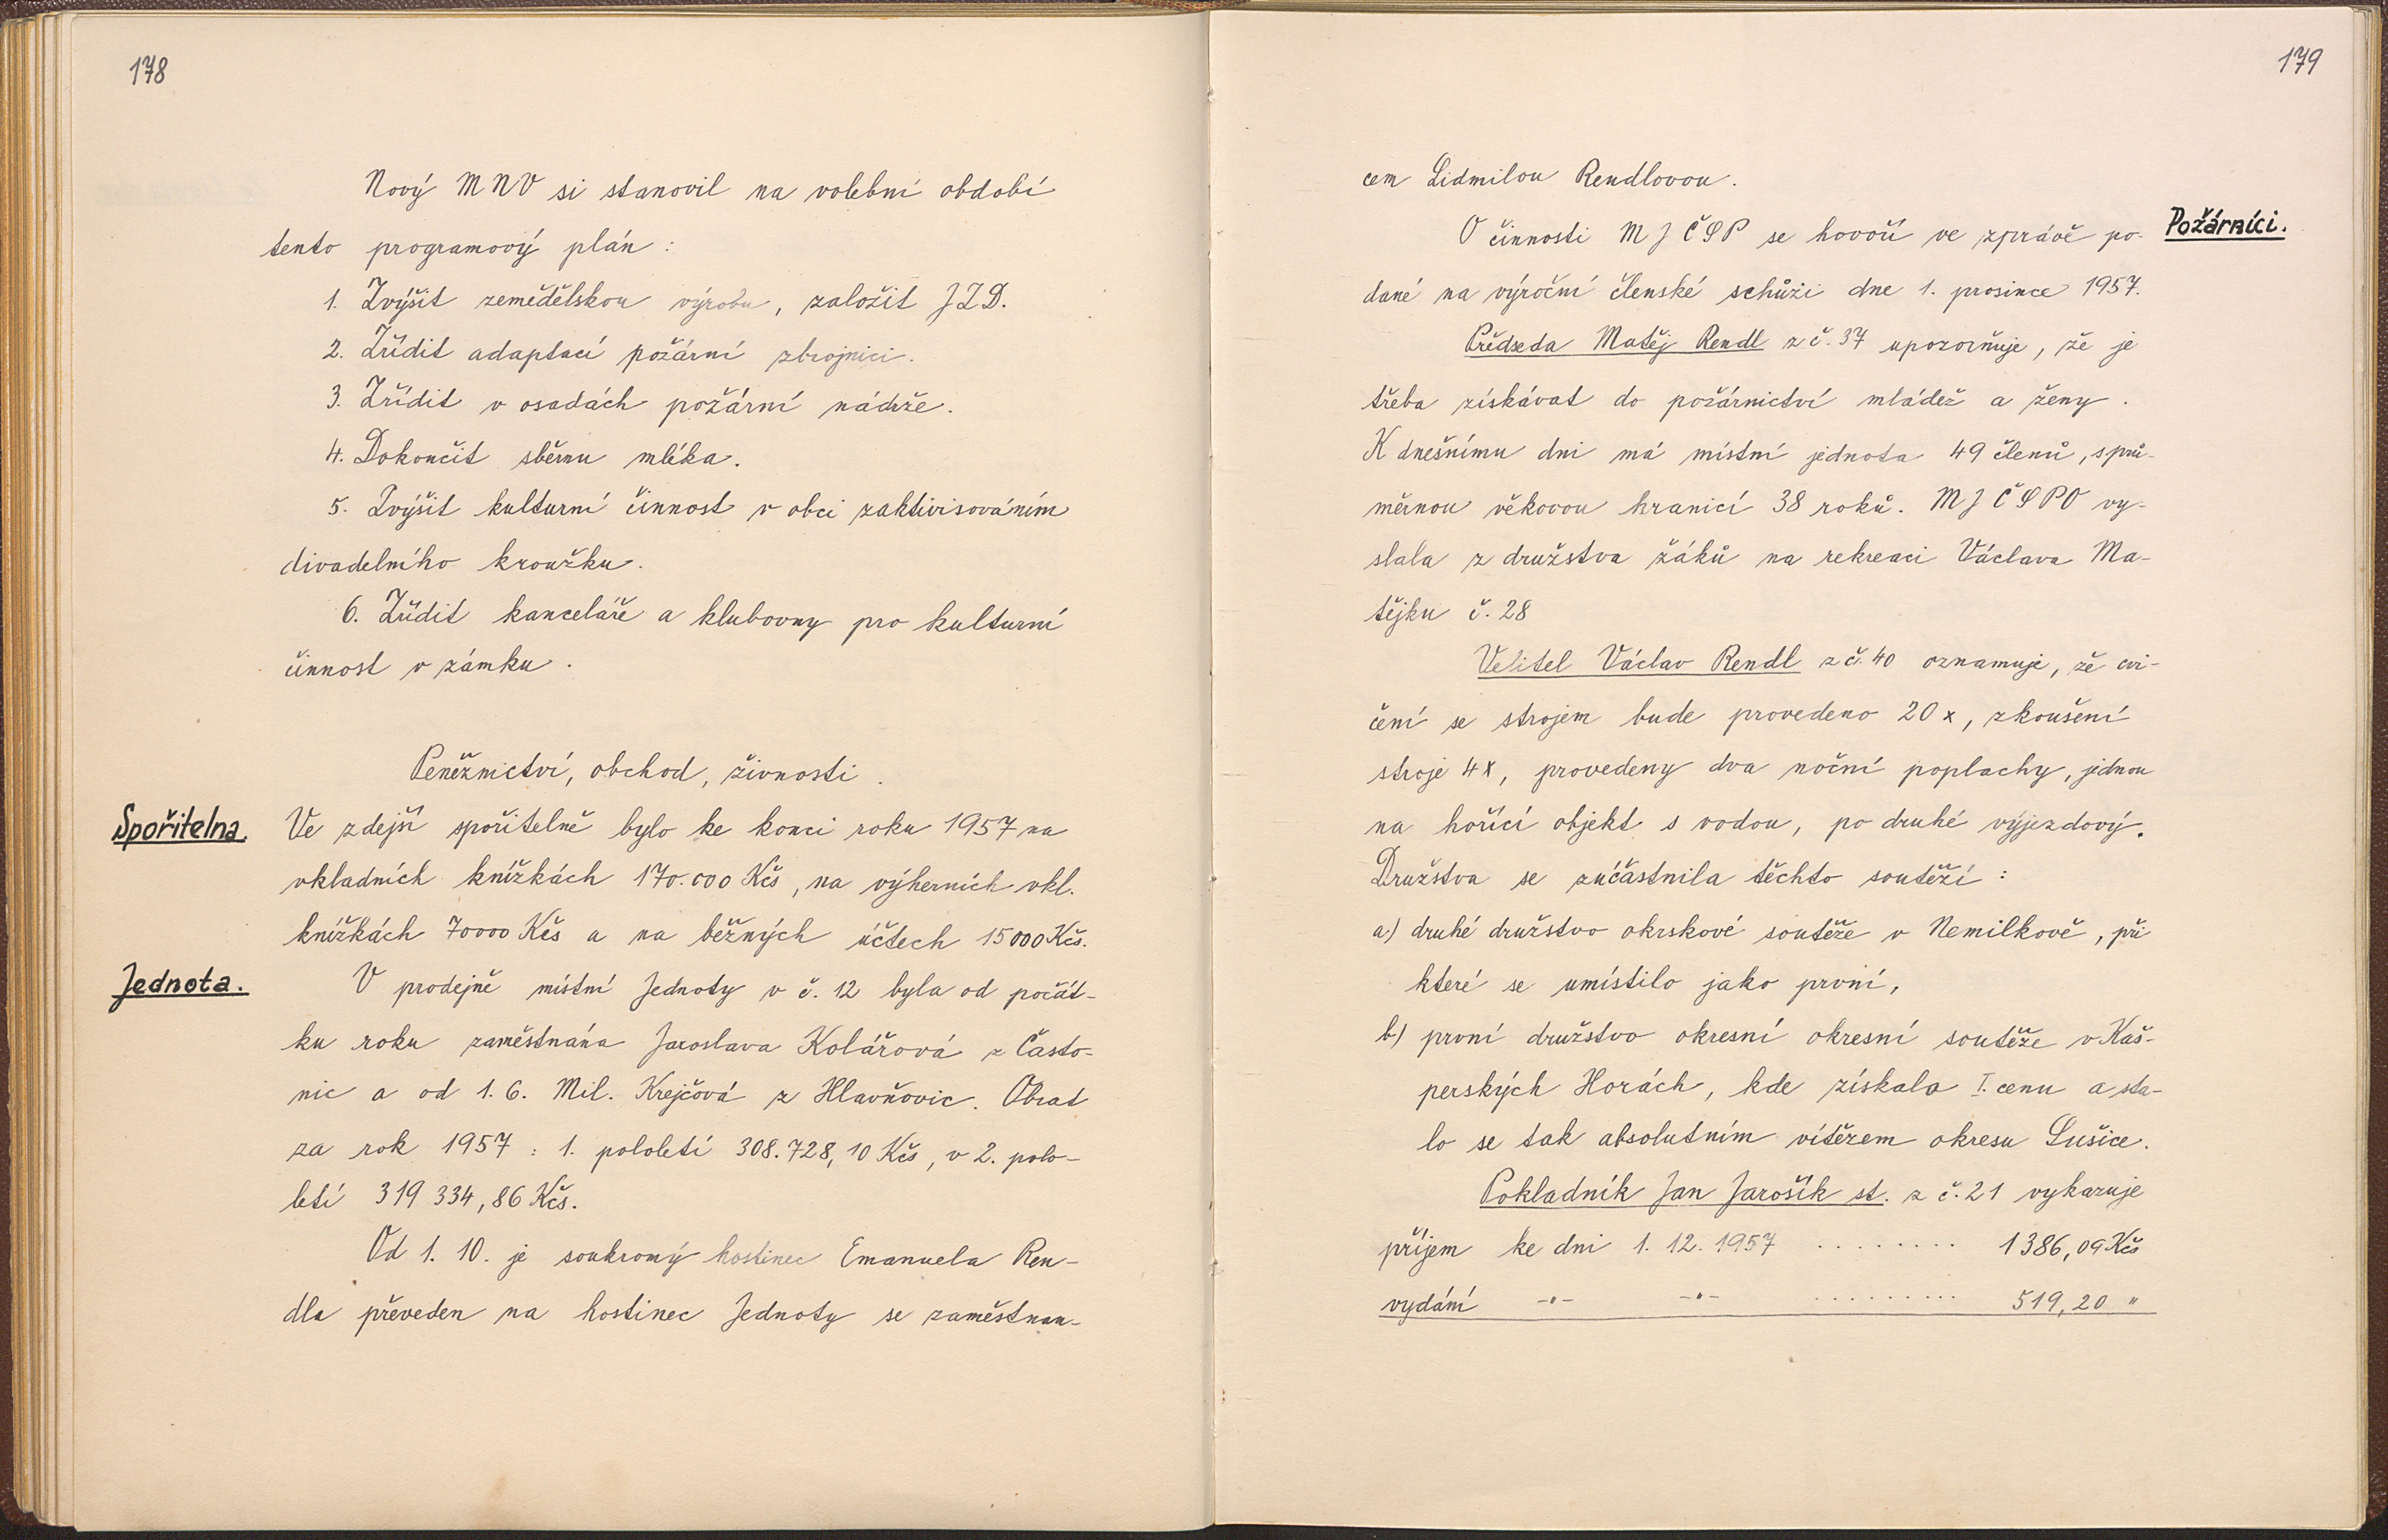 178
Nový MNV si stanovil na volební období
tento programový plán :
1. Zvýšit zemědělskou výrobu, založit JZD.
2. Zřídit adaptací požární zbrojnici.
3. Zřídit v osadách požární nádrže.
4. Dokončit sběrnu mléka.
5. Zvýšit kulturní činnost v obci zaktivisováním
divadelního kroužku.
6. Zřídit kanceláře a klubovny pro kulturní
činnost v zámku.
Peněžnictví, obchod, živnosti.
Spořitelna. Ve zdejší spořitelně bylo ke konci roku 1957 na
vkladních knížkách 170.000 Kčs, na výherních vkl.
knížkách 70000 Kčs a na běžných účtech 15000 Kčs.
Jednota. V prodejně místní Jednoty v č. 12 byla od počát-
ku roku zaměstnána Jaroslava Kolářová z Často-
nic a od 1. 6. Mil. Krejčová z Hlavňovic. Obrat
za rok 1957 : 1. pololetí 308.728,10 Kčs, v 2. polo-
letí 319 334,86 Kčs.
Od 1. 10. je soukromý hostinec Emanuela Ren-
dla převeden na hostinec Jednoty se zaměstnan-
179
cem Lidmilou Rendlovou.
O činnosti MJ ČSP se hovoří ve zprávě po- Požárníci.
dané na výroční členské schůzi dne 1. prosince 1957.
Předseda Matěj Rendl z č. 37 upozorňuje, že je
třeba získávat do požárnictví mládež a ženy.
K dnešnímu dni má místní jednota 49 členů, s prů-
měrnou věkovou hranicí 38 roků. MJ ČSPO vy-
slala z družstva žáků na rekreaci Václava Ma-
tějku č. 28
Velitel Václav Rendl z č. 40 oznamuje, že cvi-
čení se strojem bude provedeno 20 x, zkoušení
stroje 4x, provedeny dva noční poplachy, jednou
na hořící objekt s vodou, po druhé výjezdový.
Družstva se zúčastnila těchto soutěží :
a) druhé družstvo okrskové soutěže v Nemilkově, při
které se umístilo jako první,
b) první družstvo okresní okresní soutěže v Kaš-
perských Horách, kde získalo I. cenu a sta-
lo se tak absolutním vítězem okresu Sušice.
Pokladník Jan Jarošík st. z č. 21 vykazuje
příjem ke dni 1. 12. 1957 ........ 1386,09 Kčs
vydání -"- -"- ......... 519,20 "